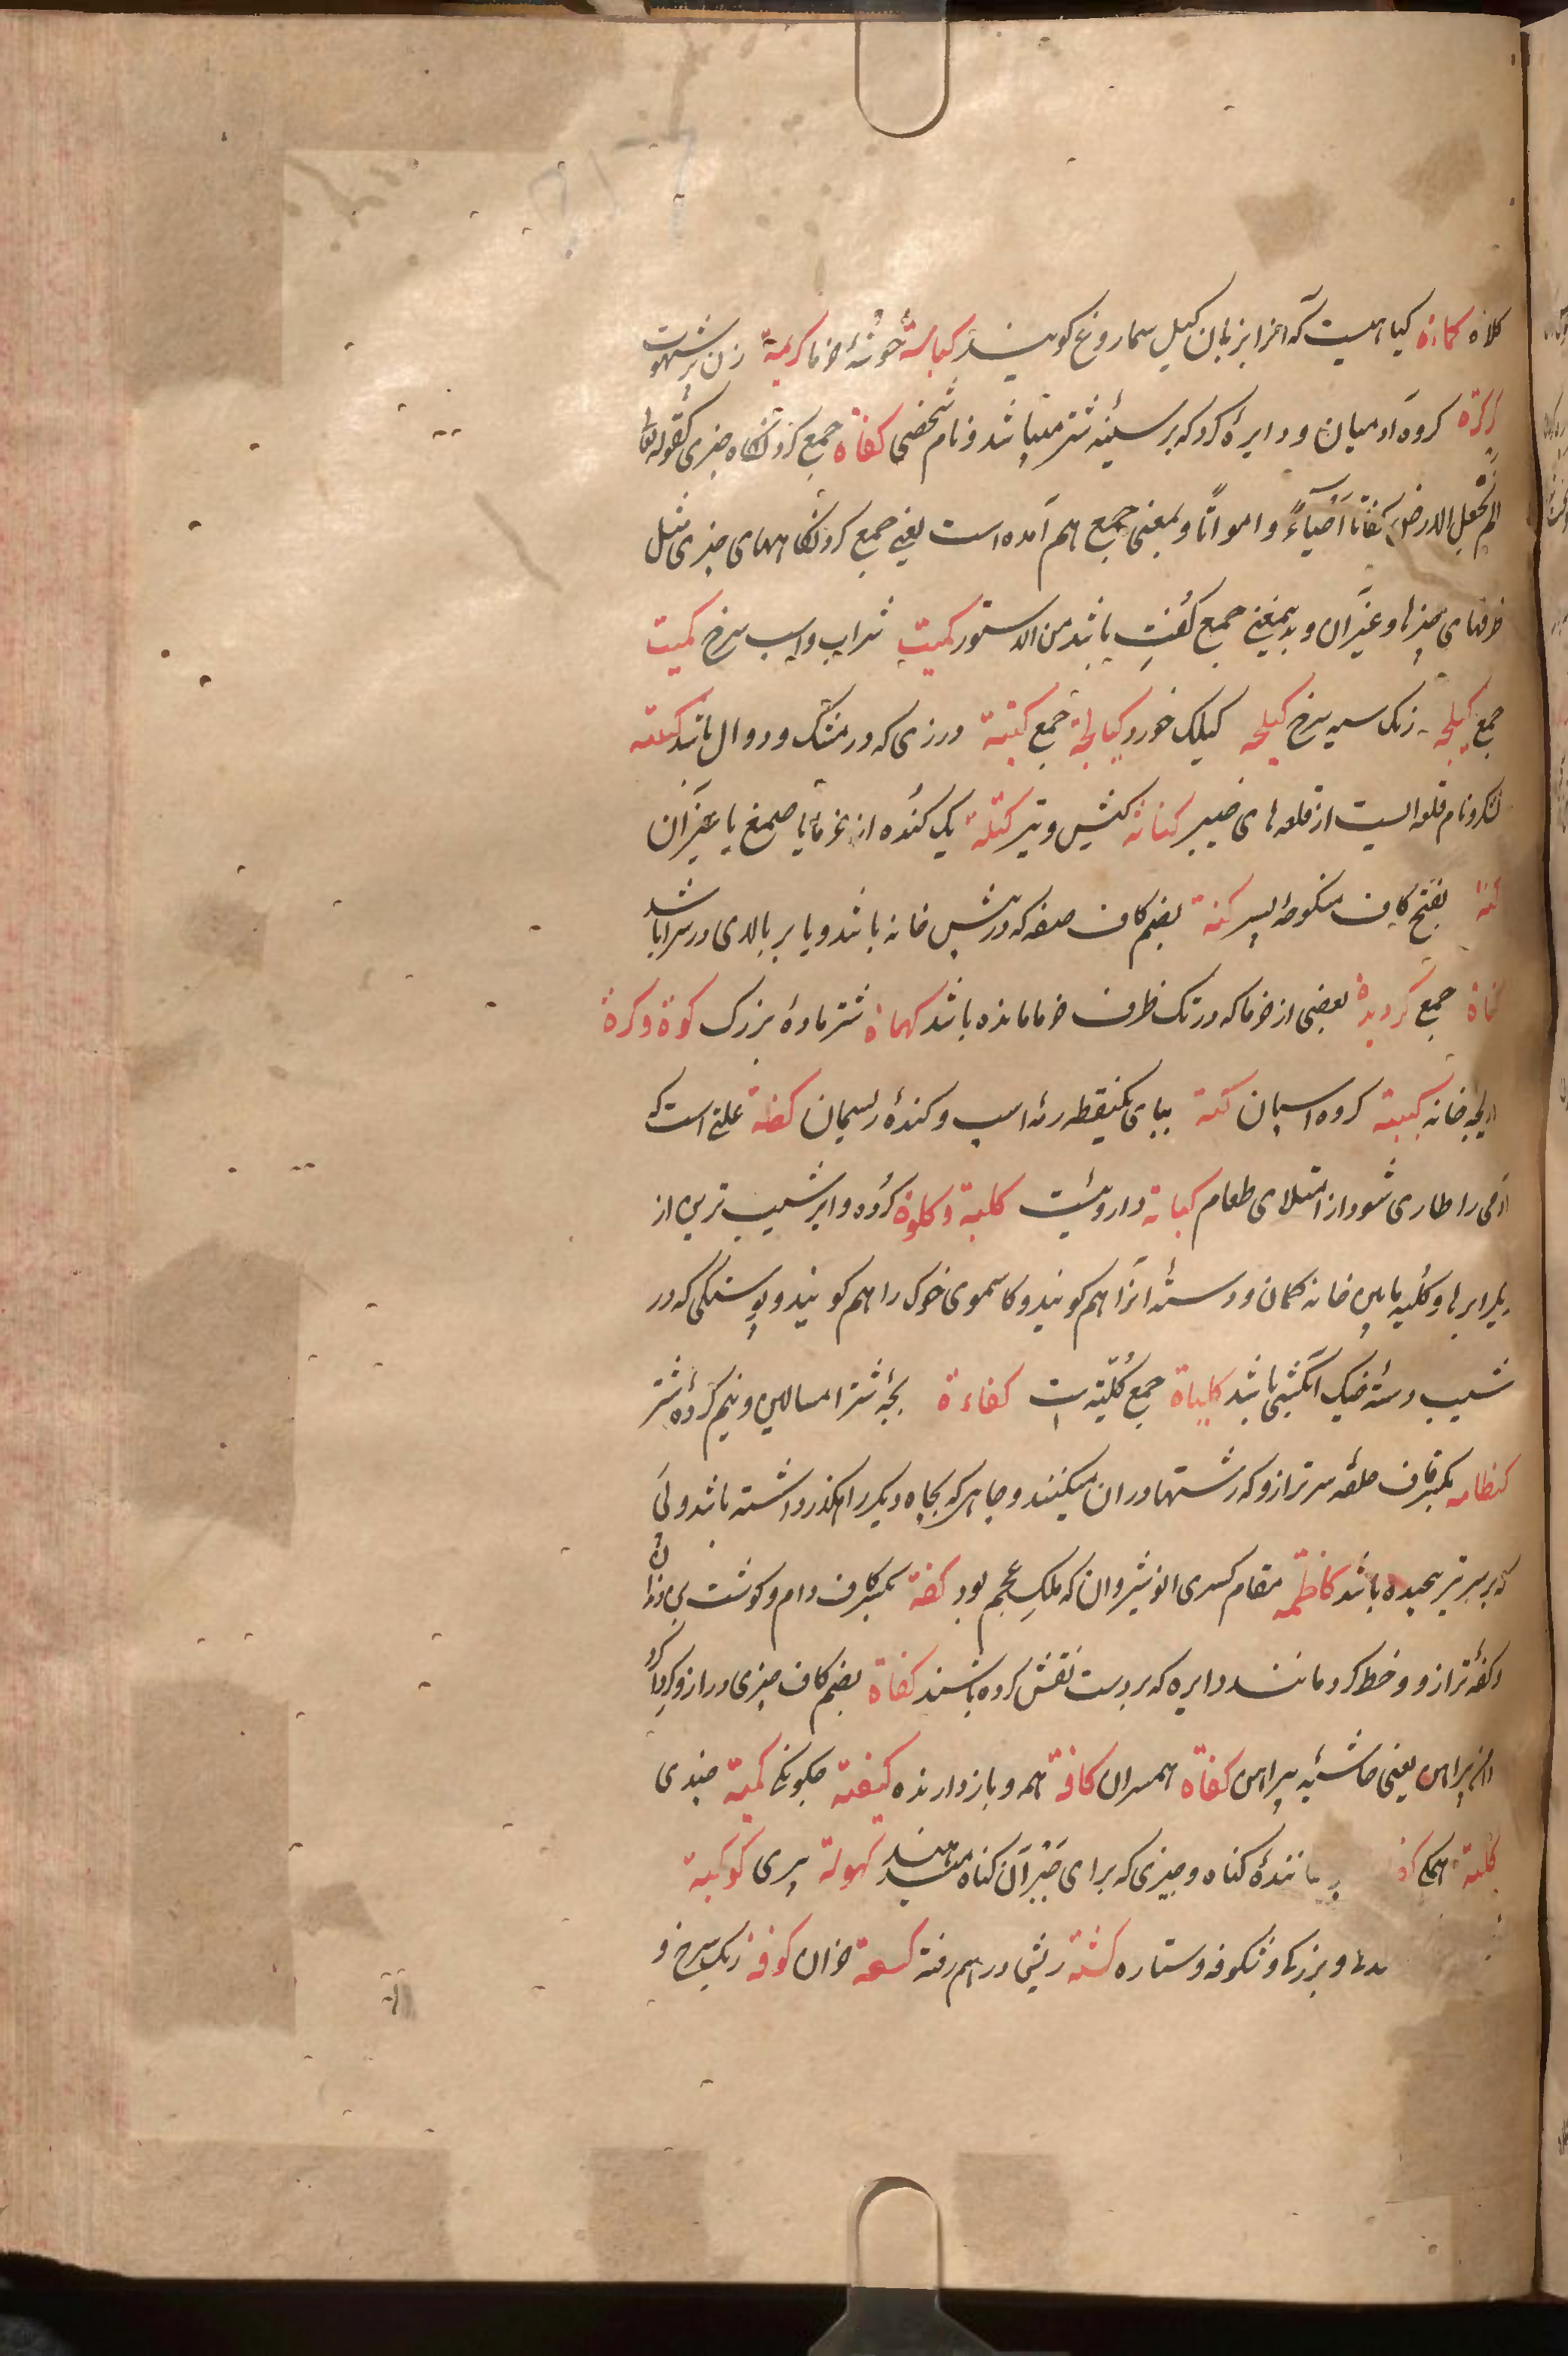 کلاه کماءة کیاهیست که انرا بزبان کیل سماروغ کویند کباسة خوشهٔ خرما کریمة زن پرشهوت
کرکرة کروه ادمیان و دایرهٔ کرد که بر سینهٔ شتر میباشد و نام شخصی کفاة جمع کردنکاه چیزی کقوله تعا
الم نجعل الارض کفاتا أحیاءً و امواتًا و بمعنی جمع هم آمده است یعنی جمع کردنکاههای چیزی مثل
ظرفهای چیزها و غیر آن و بدیمعنی جمع کفت باشد من الدستور کمیت شراب و اسپ سرخ کمیت
جمع کیلجه رنک سیه سرخ کیلجه کیلک خورد کیالجة جمع کتبة درزی که در مشک و دوال باشد کتیبه
لشکر و نام قلعه ایست از قلعه های خیبر کنانة کیش و تیر کتلة یک کنده از خرما یا صمغ یا غیر آن
کنة بفتح کاف منکوحهٔ پسر کنة بضم کاف صفه که در پیش خانه باشد و یا بر بالای در سرا باشد
کماة جمع کردیدة بعضی از خرما که در تک ظرف خرما مانده باشد کهماة شتر مادهٔ بزرک کوة وکرة
دریچه خانه کبیبة کروه اسپان کبة ببای یکنقطه رمه اسپ و کندهٔ ریسمان کظة علتی است که
ادمی را طاری شود از امتلای طعام کبابة داروییست کلیة وکلوة کرده و ابر شیب ترین از
دیگر ابرها و کلیه پایین خانه کمان و دستهٔ انرا هم کویند و کاسموی خوک را هم کویند و پوستکی که در
شیب دستهٔ خیک انکشتی باشد کلیاة جمع کلیّة است کفاءة بچهٔ شتر امسالین و نیم کرده شتر
کظامه بکسر کاف حلقه سر ترازو که رشتها در ان میکنند و چاهی که بچاه دیکر راهکذر داشته باشد و پی
که بر سر تیر پیچیده باشد کاظمه مقام کسری انوشیروان که ملک عجم بود کفة بکسر کاف دام و کوشت بن دندان
و کفهٔ ترازو و خط کرد مانند دایره که بر دست نقش کرده باشند کفاة بضم کاف چیزی دراز و کرداکرد
دامن پیراهن یعنی حاشیهٔ پیراهن کفاة همسران کافة همه و بازدارنده کیفیة چکونکی کمیة چندی
کلیة همکی پوشانندهٔ کناه و چیزی که برای جبر آن کناه میدهند کهولة پیری کوکبة
و بزرکی و شکوفه و ستاره کشة ریشی در هم رفته کسعة خران کوفة ریک سرخ و